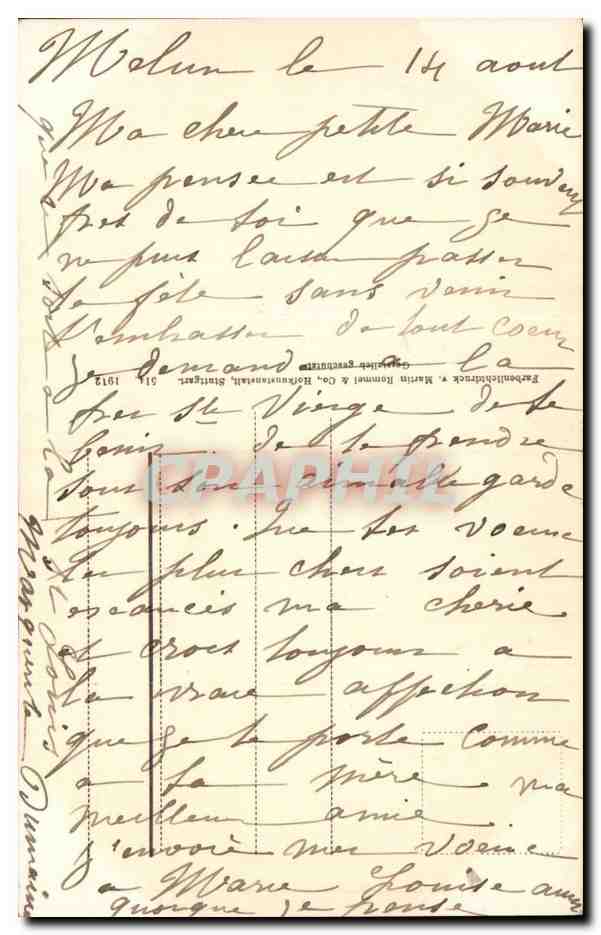 Melun le 14 aout
Ma chere petite Marie
Ma pensee est si souvent
pres de toi que je
ne puis laisser passer
ta fête sans venir
t'embrasser de tout coeur
je demande a la
tres Ste Vierge de te
benir de te prendre
sous son aimable garde
toujours. Que tes voeux
les plus chers soient
exaucés ma cherie
et crois toujours a
la vraie affection
que je te porte comme
a ta mère ma
meilleure amie
j'envoie mes voeux
a Marie Louise aussi
quoique je pense
qu'elle sera a la
St Louis
Marguerite Dumaine
Farbenlichtdruck v. Martin Rommel & Co., Hofkunstanstalt, Stuttgart. 514 1912
Gesetzlich geschützt
CPAPHIL